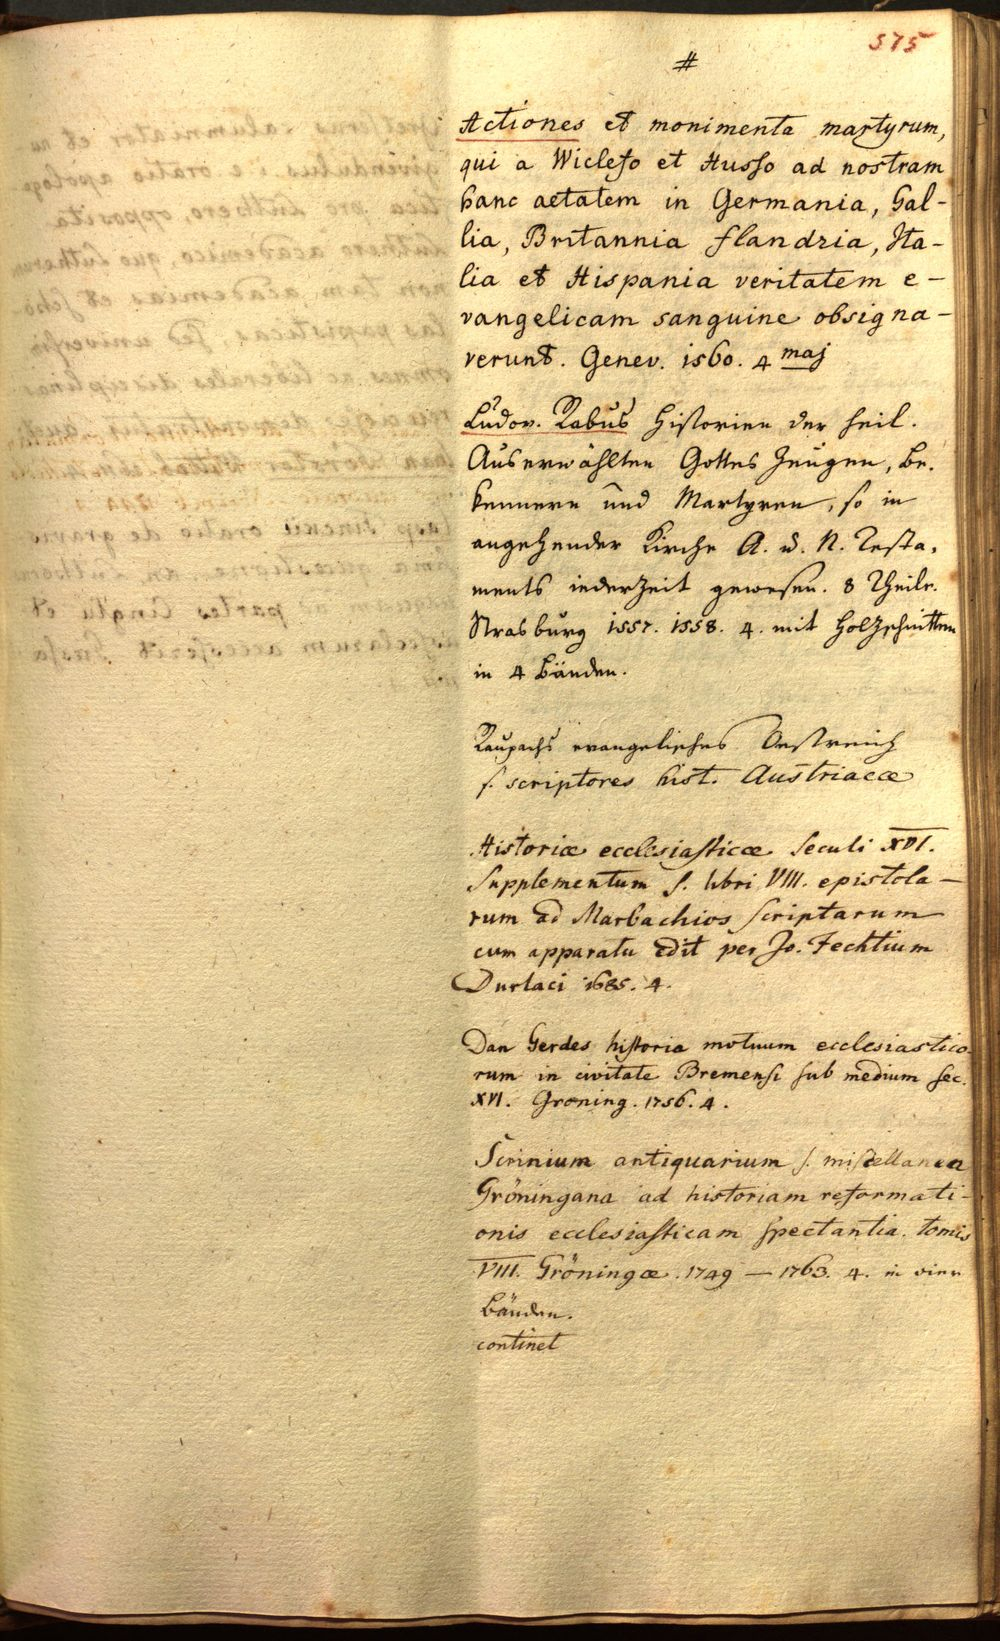 575
#
Actiones et monimenta martyrum,
qui a Wiclefo et Husso ad nostram
hanc aetatem in Germania, Gal-
lia, Britannia flandria, Ita-
lia et Hispania veritatem e-
vangelicam sanguine obsigna-
verunt. Genev. 1560. 4 maj
Ludov. Rabus Historien der heil.
Auserwählten Gottes Zeugen, Be-
kennern und Martyren, so in
angehender Kirche A. u. N. Testa-
ments iederzeit gewesen. 8 Theile.
Strasburg 1557. 1558. 4. mit Holzschnitten
in 4 Bänden.
Raupachs evangelisches Oestreich
s. scriptores hist. Austriacæ
Historiæ ecclesiasticæ seculi XVI.
Supplementum s. libri VIII. epistola-
rum ad Marbachios scriptarum
cum apparatu edit per Jo. Fechtium
Durlaci 1685. 4.
Dan Gerdes historia motuum ecclesiastico-
rum in civitate Bremensi sub medium sec.
XVI. Groning. 1756. 4.
Scrinium antiquarium s. miscellanea
Gröningana ad historiam reformati-
onis ecclesiasticam spectantia. tomis
VIII. Gröningæ. 1749 — 1763. 4. in vier
Bänden.
continet